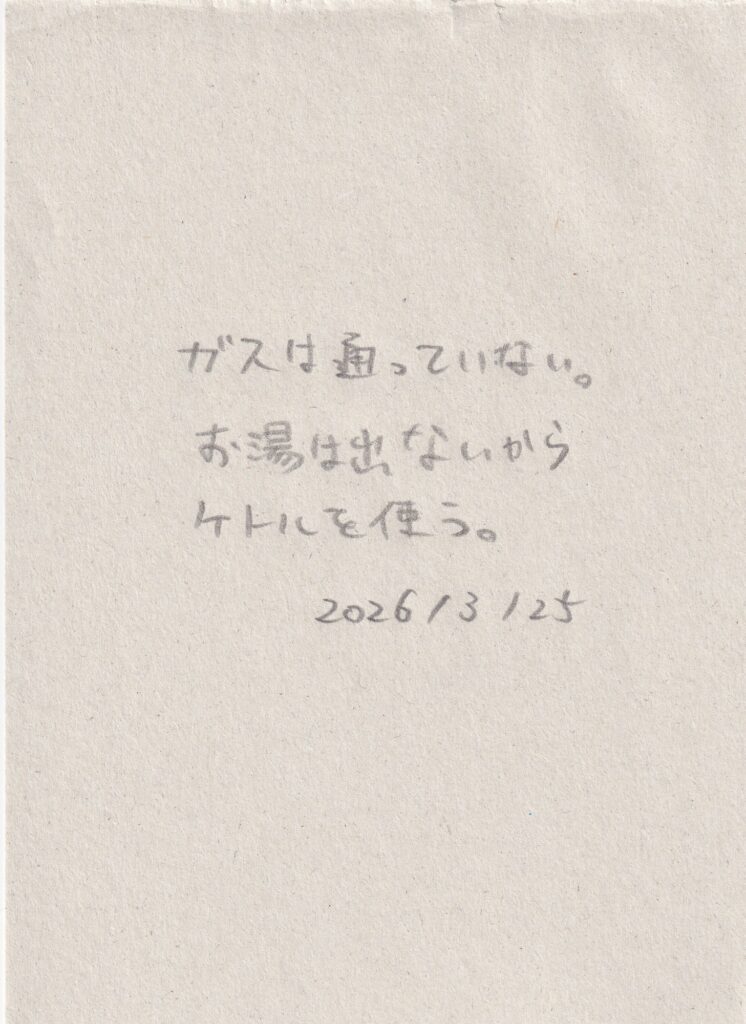 ガスは通っていない。
お湯は出ないから
ケトルを使う。
2026/3/25